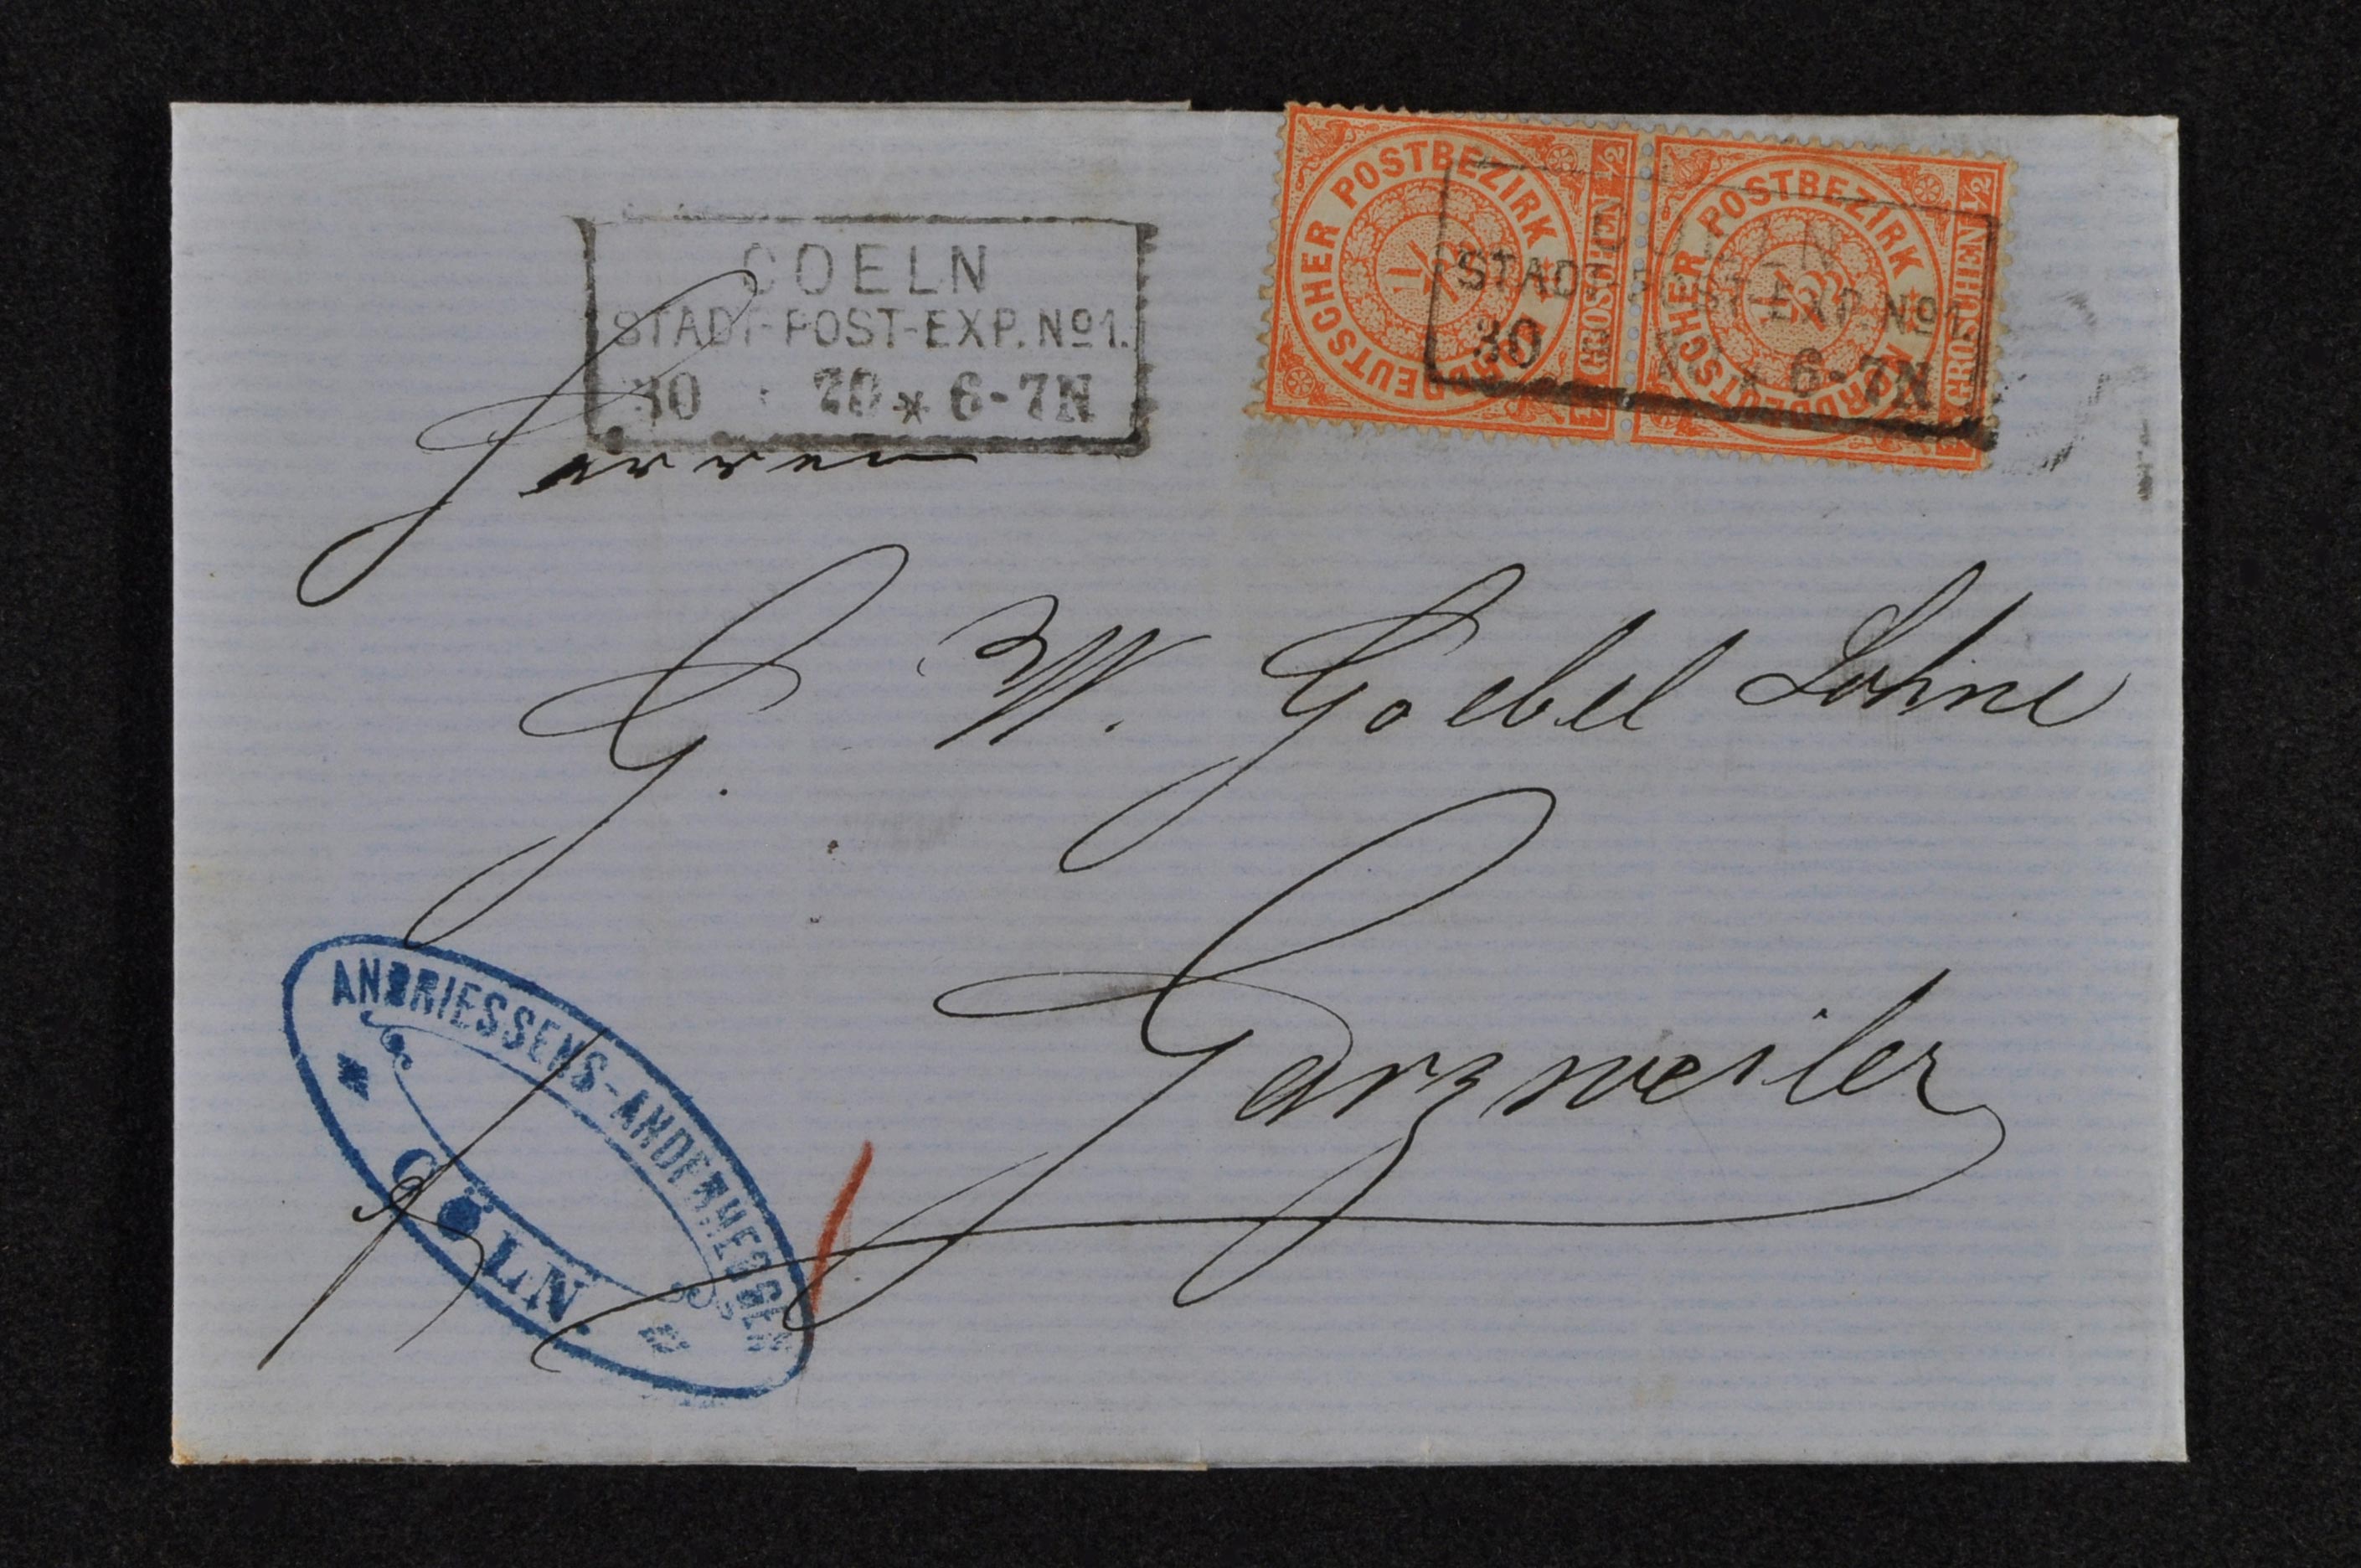 COELN
STADT-POST-EXP. No 1.
30 70 * 6-7N
NORDDEUTSCHER POSTBEZIRK
1/2
GROSCHEN 1/2
NORDDEUTSCHER POSTBEZIRK
1/2
GROSCHEN 1/2
COELN
STADT-POST-EXP. No 1.
30 * 6-7N
Herren
G. W. Goebel Sohne
Garzweiler
ANDRIESSENS-ANDERHEGGEN
CÖLN.